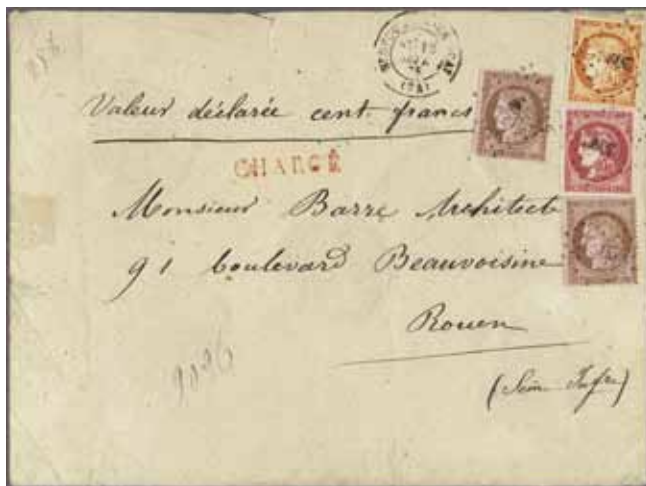 Valeur déclarée cent francs
CHARGÉ
Monsieur Barre Architecte
91 boulevard Beauvoisine
Rouen
(Sein Infre)